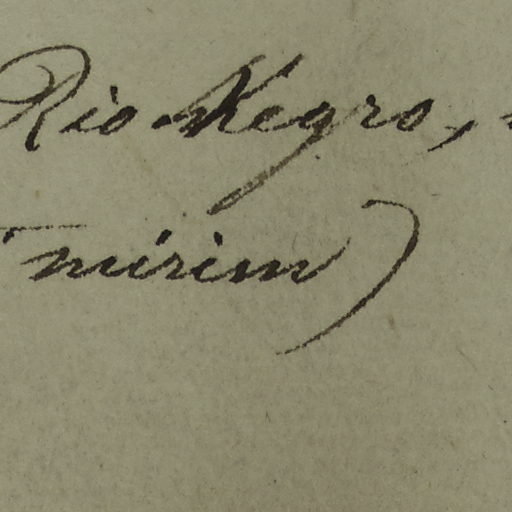 Rio Negro,
mirim)